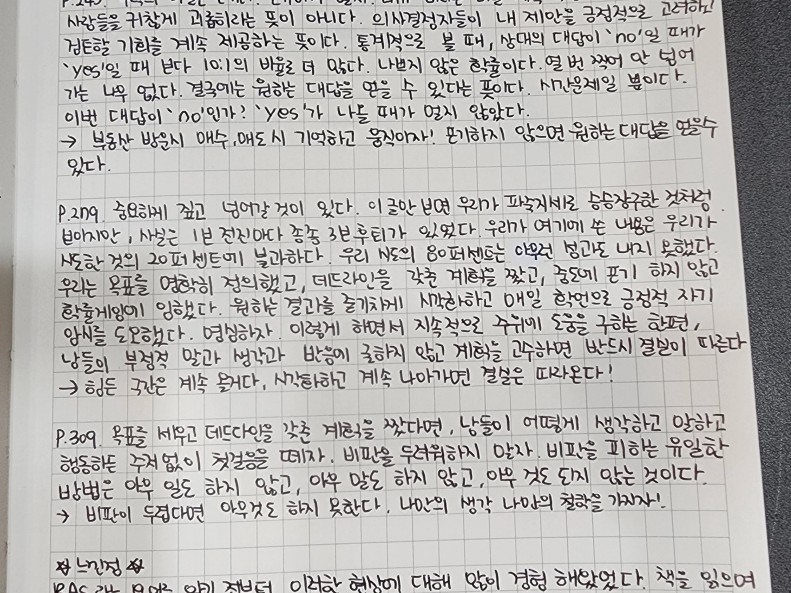 사람들을 귀찮게 괴롭히라는 뜻이 아니다. 의사결정자들이 내 제안을 긍정적으로 고려하고
검토할 기회를 계속 제공하는 뜻이다. 통계적으로 볼 때, 상대의 대답이 'no'일 때가
'yes'일 때 보다 10:1의 비율로 더 많다. 나쁘지 않은 확률이다. 열 번 찍어 안 넘어
가는 나무 없다. 결국에는 원하는 대답을 얻을 수 있다는 뜻이다. 시간문제일 뿐이다.
이번 대답이 'no'인가? 'yes'가 나올 때가 멀지 않았다.
→ 부동산 방문시 매수, 매도 시 기억하고 움직이자! 포기하지 않으면 원하는 대답을 얻을수
있다.
P.279. 중요하게 짚고 넘어갈 것이 있다. 이 글만 보면 우리가 파죽지세로 승승장구한 것처럼
보이지만, 사실은 1보 전진마다 종종 3보 후퇴가 있었다. 우리가 여기에 쓴 내용은 우리가
시도한 것의 20퍼센트에 불과하다. 우리 시도의 80퍼센트는 아무런 성과도 내지 못했다.
우리는 목표를 명확히 정의했고, 데드라인을 갖춘 계획을 짰고, 중도에 포기 하지 않고
확률게임에 임했다. 원하는 결과를 줄기차게 시각화하고 매일 확언으로 긍정적 자기
암시를 도모했다. 명심하자. 이렇게 하면서 지속적으로 주위에 도움을 구하는 한편,
남들의 부정적 말과 생각과 반응에 굴하지 않고 계획을 고수하면 반드시 결실이 따른다
→ 힘든 구간은 계속 올거다, 시각화하고 계속 나아가면 결실은 따라온다!
P.309. 목표를 세우고 데드라인을 갖춘 계획을 짰다면, 남들이 어떻게 생각하고 말하고
행동하든 주저없이 첫걸음을 떼자. 비판을 두려워하지 말자. 비판을 피하는 유일한
방법은 아무 일도 하지 않고, 아무 말도 하지 않고, 아무 것도 되지 않는 것이다.
→ 비판이 두렵다면 아무것도 하지 못한다. 나만의 생각 나만의 철학을 가지자!
☆ 느낀점 ☆
이러한 현상에 대해 많이 경험 해왔었다. 책을 읽으며